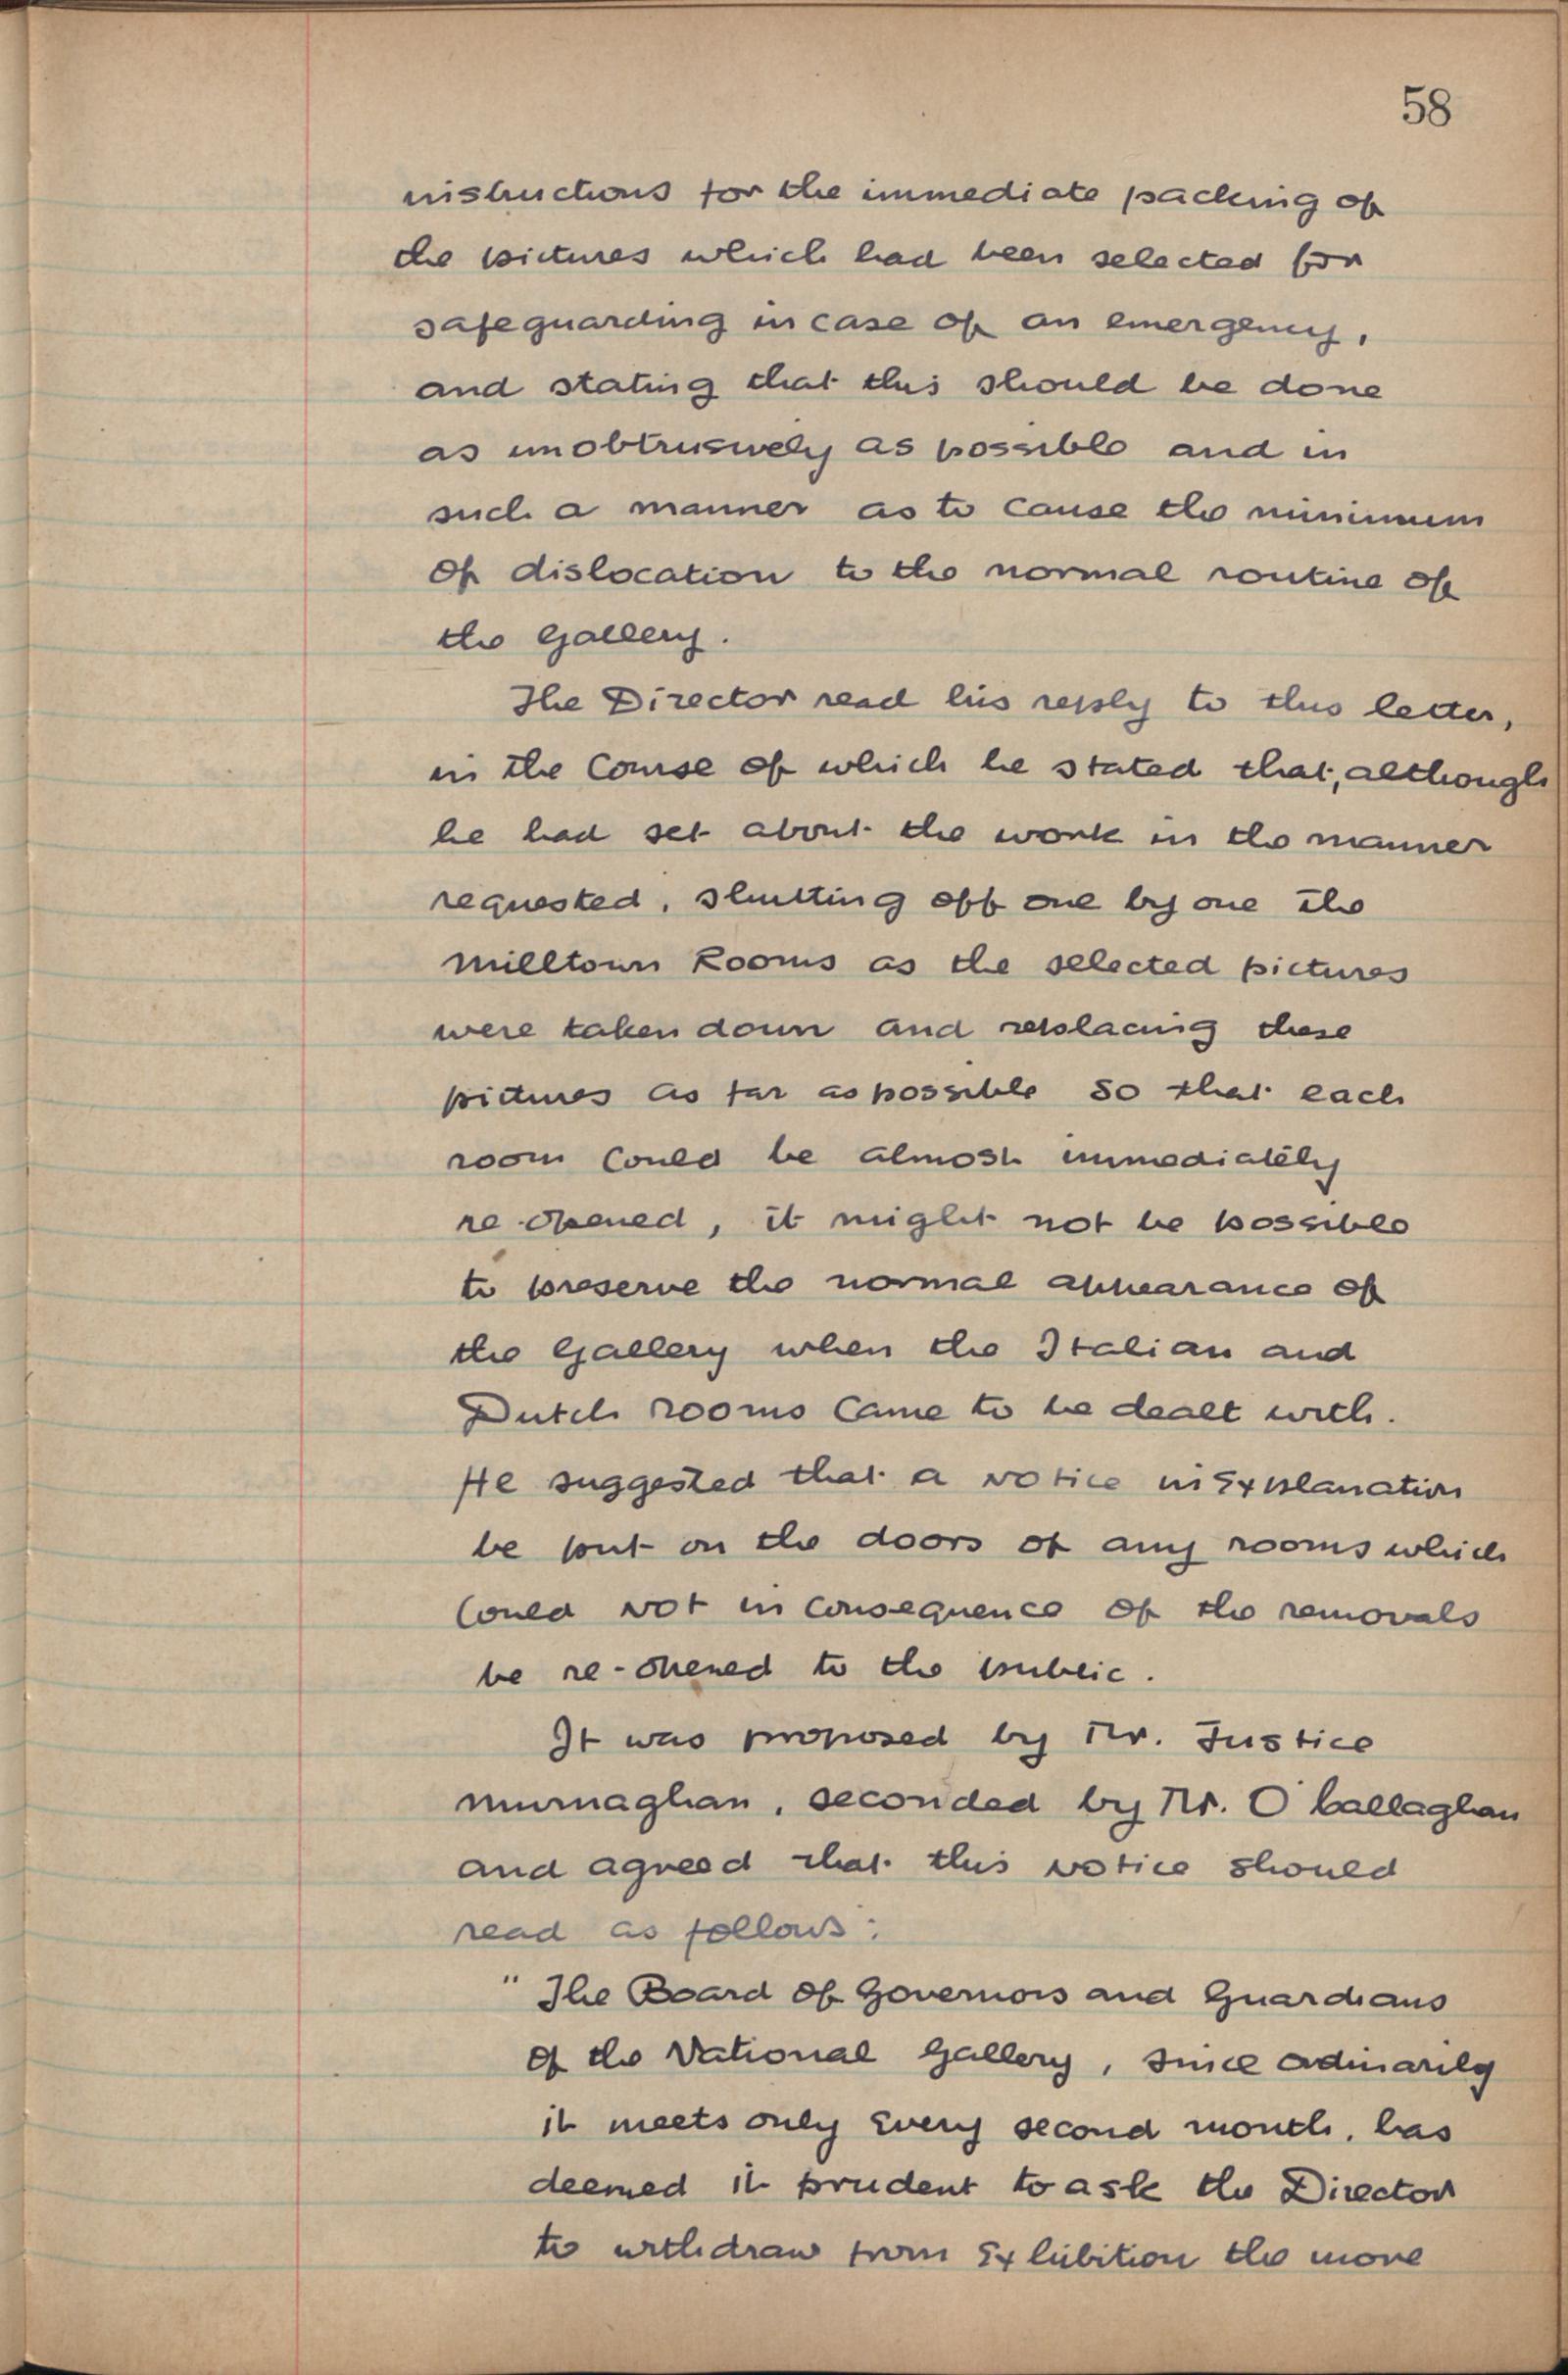 58
instructions for the immediate packing of
the pictures which had been selected for
safeguarding in case of an emergency,
and stating that this should be done
as unobtrusively as possible and in
such a manner as to cause the minimum
of dislocation to the normal routine of
the Gallery.
The Director read his reply to this letter,
in the course of which he stated that, although
he had set about the work in the manner
requested, shutting off one by one the
Milltown Rooms as the selected pictures
were taken down and replacing these
pictures as far as possible so that each
room could be almost immediately
re-opened, it might not be possible
to preserve the normal appearance of
the Gallery when the Italian and
Dutch rooms came to be dealt with.
He suggested that a notice in explanation
be put on the doors of any rooms which
could not in consequence of the removals
be re-opened to the public.
It was proposed by Mr. Justice
Murnaghan, seconded by Mr. O'Callaghan
and agreed that this notice should
read as follows:
"The Board of Governors and Guardians
of the National Gallery, since ordinarily
it meets only every second month, has
deemed it prudent to ask the Director
to withdraw from exhibition the more